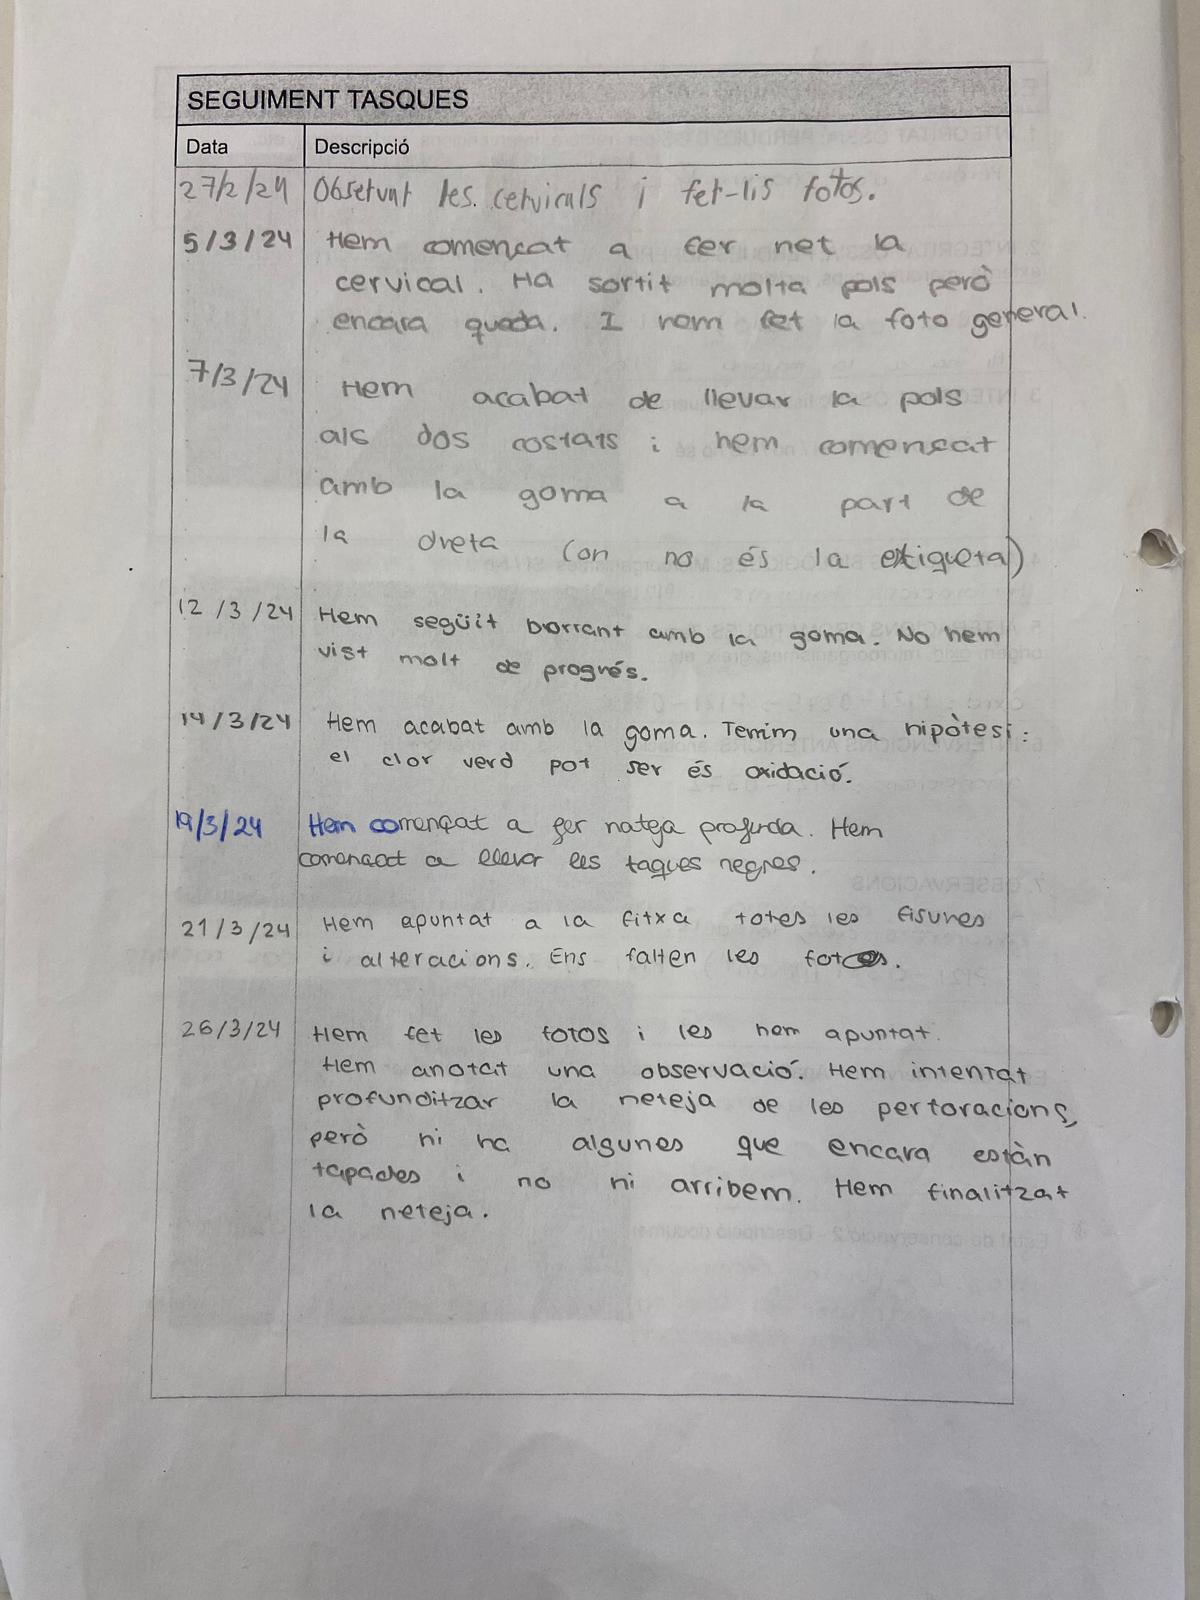 SEGUIMENT TASQUES
Data Descripció
27/2/24 Observunt les cervicals i fet-lis fotos.
5/3/24 Hem començat a fer net la
cervical. Ha sortit molta pols però
encara queda. I hem fet la foto general.
7/3/24 Hem acabat de llevar la pols
als dos costats i hem començat
amb la goma a la part de
la dreta (on no és la etiqueta)
12/3/24 Hem següit borrant amb la goma. No hem
vist molt de progrés.
14/3/24 Hem acabat amb la goma. Tenim una hipòtesi:
el clor verd pot ser és oxidació.
19/3/24 Hem començat a fer nateja profunda. Hem
començat a llevar les taques negres.
21/3/24 Hem apuntat a la fitxa totes les fisures
i alteracions. Ens falten les fotos.
26/3/24 Hem fet les fotos i les hem apuntat.
Hem anotat una observació. Hem intentat
profunditzar la neteja de les perforacions,
però hi ha algunes que encara estàn
tapades i no hi arribem. Hem finalitzat
la neteja.